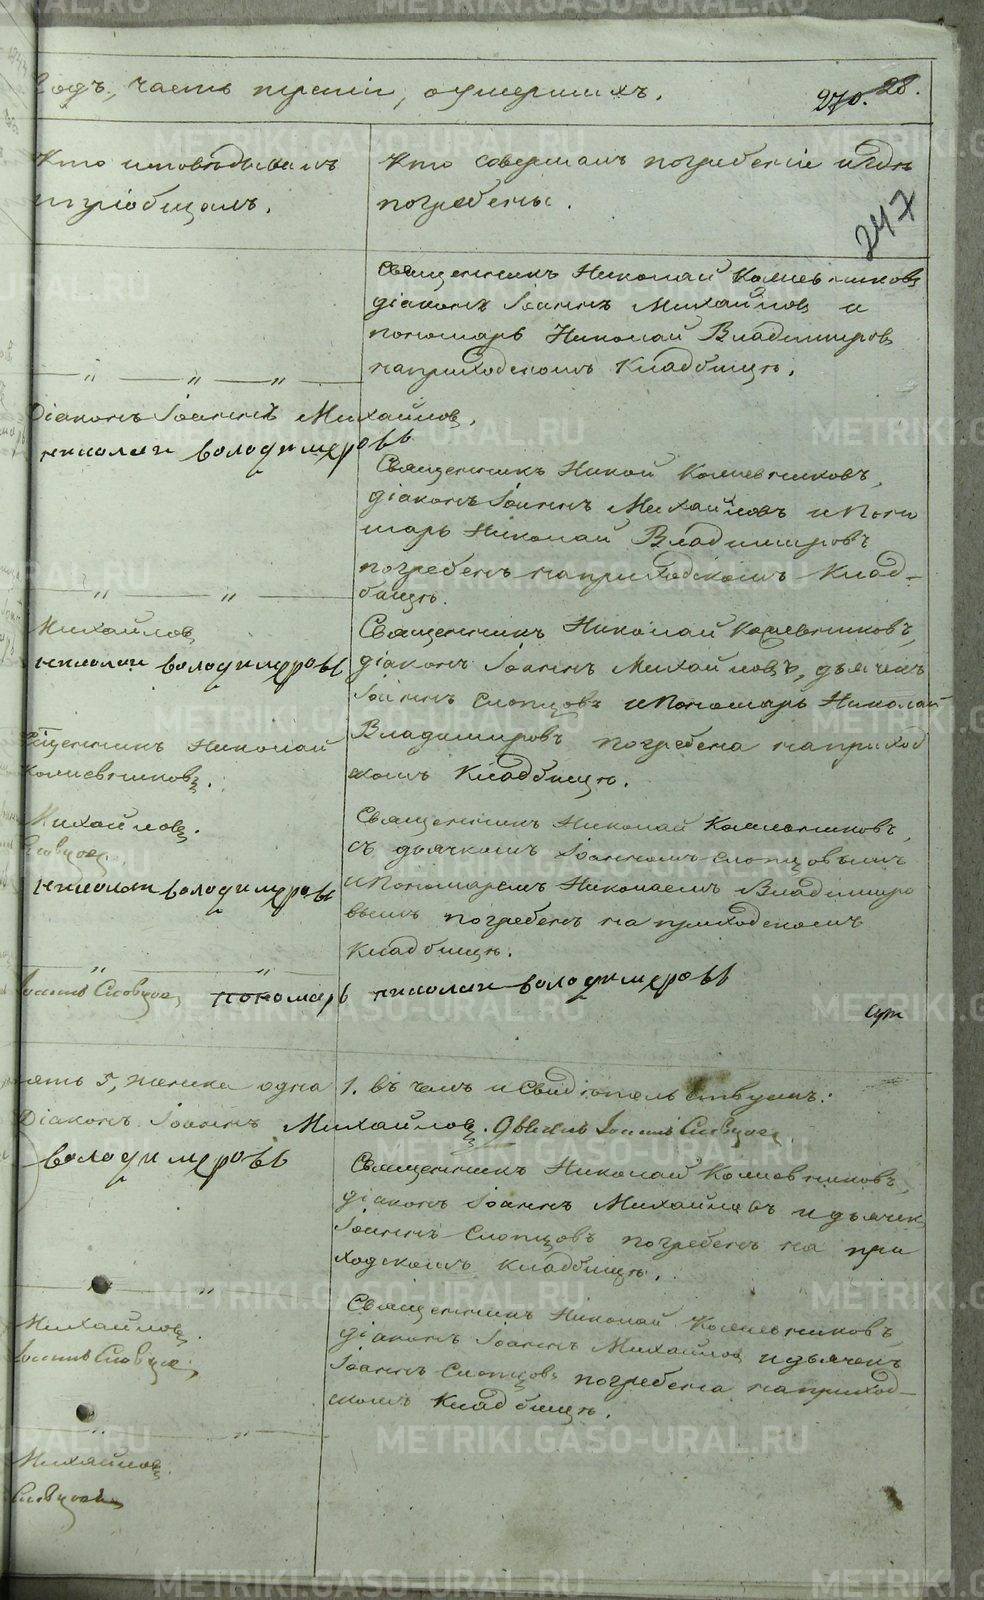 Годъ, часть третiя, о умершихъ.
270. 28.
Кто исповѣдывалъ
и прiобщалъ.
Кто совершалъ погребенiе и гдѣ
погребены.
247
Священникъ Николай
дiаконъ Iоаннъ Михайловъ и
пономарь Николай Владимировъ
на приходскомъ Кладбищѣ.
Дiаконъ Iоаннъ Михайловъ.
николаи володимеровъ
Священникъ
дiаконъ Iоаннъ Михайловъ и Поно
марь Николай Владимировъ
погребенъ на приходскомъ Клад-
бищѣ.
Михайловъ
николаи володимеровъ
Священникъ Николай
дiаконъ Iоаннъ Михайловъ, дьячекъ
Iоаннъ Слопцовъ и Пономарь Николай
Владимировъ погребена на приход
скомъ Кладбищѣ.
Священникъ Николай
Михайловъ.
николаи володимеровъ
Священникъ Николай
съ дьячкомъ Iоанномъ Слопцовымъ
и Пономаремъ Николаемъ Владимиро
вымъ погребенъ на приходскомъ
Кладбищѣ.
Iоаннъ пономарь николаи володимеровъ
пять 5, женска одна 1. въ чемъ и свидѣтельствуемъ:
Дiаконъ Iоаннъ Михайловъ. Iоаннъ
володимеровъ
Священникъ Николай
дiаконъ Iоаннъ Михайловъ и дьячек
Iоаннъ Слопцовъ погребенъ на при
ходскомъ кладбищѣ.
Михайловъ.
Iоаннъ
Священникъ Николай
дiаконъ Iоаннъ Михайлов и дьячекъ
Iоаннъ Слопцовъ погребена на приход-
скомъ Кладбищѣ.
Михайловъ.
METRIKI.GASO-URAL.RU